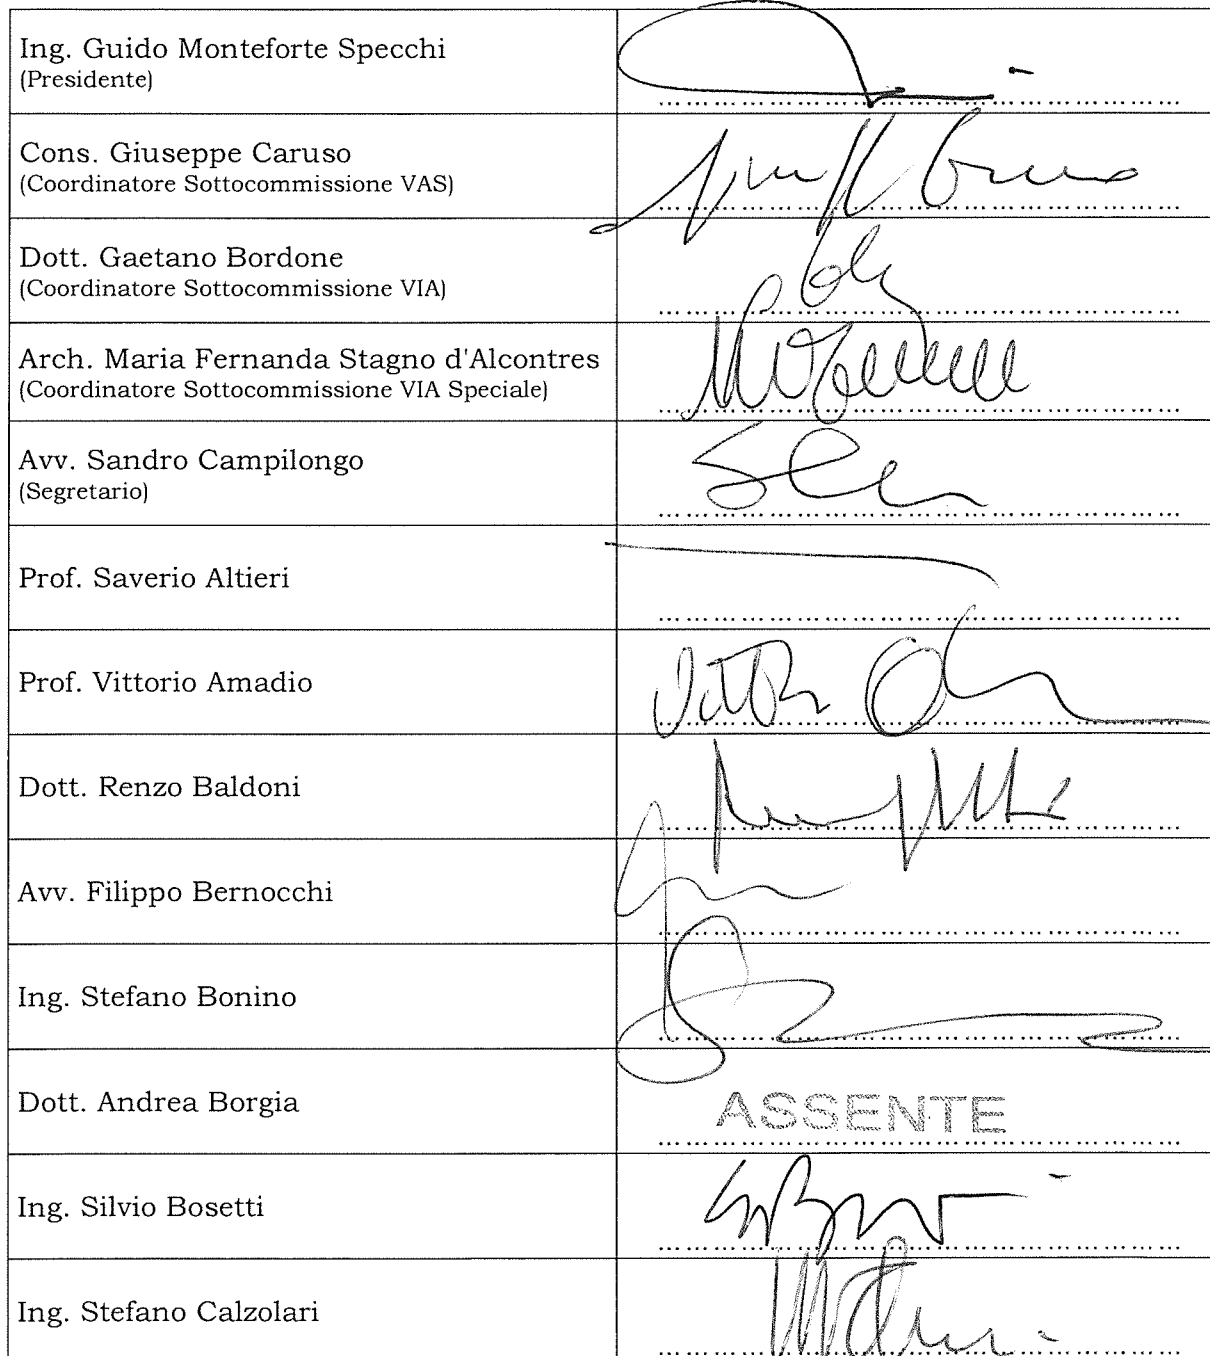 Ing. Guido Monteforte Specchi
(Presidente)
Cons. Giuseppe Caruso
(Coordinatore Sottocommissione VAS)
Dott. Gaetano Bordone
(Coordinatore Sottocommissione VIA)
Arch. Maria Fernanda Stagno d'Alcontres
(Coordinatore Sottocommissione VIA Speciale)
Avv. Sandro Campilongo
(Segretario)
Prof. Saverio Altieri
Prof. Vittorio Amadio
Dott. Renzo Baldoni
Avv. Filippo Bernocchi
Ing. Stefano Bonino
Dott. Andrea Borgia
ASSENTE
Ing. Silvio Bosetti
Ing. Stefano Calzolari